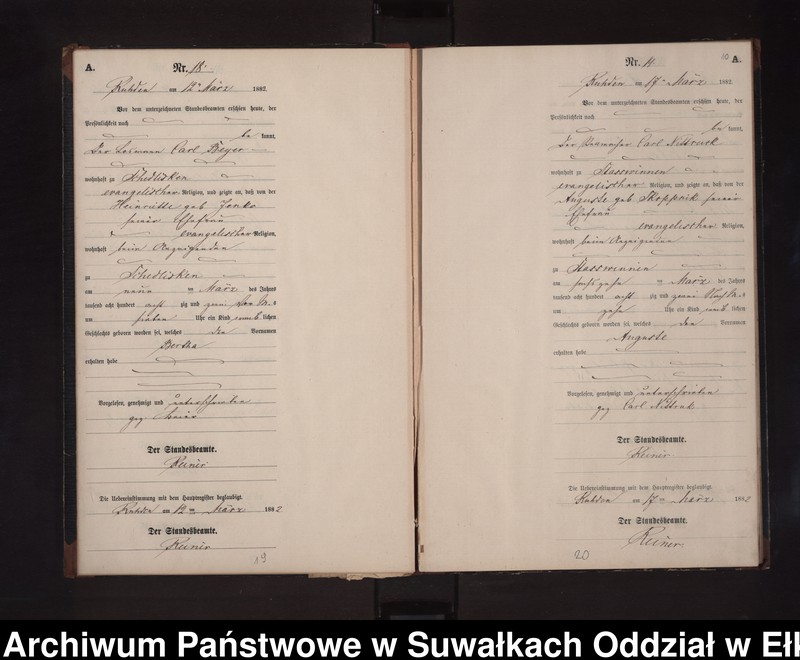 A.
Nr. 18.
Ruhden am 12ten März 1882.
Vor dem unterzeichneten Standesbeamten erschien heute, der
Persönlichkeit nach
be kannt,
Der Losmann Carl Beyer
wohnhaft zu Schedlisken
evangelischer Religion, und zeigte an, daß von der
Heinriette geb
seiner Ehefrau
evangelischer Religion,
wohnhaft beim Anzeigenden
zu Schedlisken
am neun ten März des Jahres
tausend acht hundert acht zig und zwei Vor M.s
um sieben Uhr ein Kind weib. lichen
Geschlechts geboren worden sei, welches den Vornamen
Bertha
erhalten habe
Vorgelesen, genehmigt und unterschrieben
gez
Der Standesbeamte.
Reiner
Die Uebereinstimmung mit dem Hauptregister beglaubigt.
Ruhden am 12 ten März 1882
Der Standesbeamte.
Reiner
19
10 A.
Nr.
Ruhden am 17ten März 1882.
Vor dem unterzeichneten Standesbeamten erschien heute, der
Persönlichkeit nach
be kannt,
Der Carl Nittruck
wohnhaft zu Stasswinnen
evangelischer Religion, und zeigte an, daß von der
Auguste geb Skoppnik seiner
Ehefrau
evangelischer Religion,
wohnhaft beim Anzeigenden
zu Stasswinnen
am fünfzehn ten März des Jahres
tausend acht hundert acht zig und zwei Nach M.s
um zehn Uhr ein Kind weib. lichen
Geschlechts geboren worden sei, welches den Vornamen
Auguste
erhalten habe
Vorgelesen, genehmigt und unterschrieben
gez Carl Nittruk
Der Standesbeamte.
Reiner
Die Uebereinstimmung mit dem Hauptregister beglaubigt.
Ruhden am 17 ten März 1882
Der Standesbeamte.
Reiner
20
Archiwum Państwowe w Suwałkach Oddział w Ełk